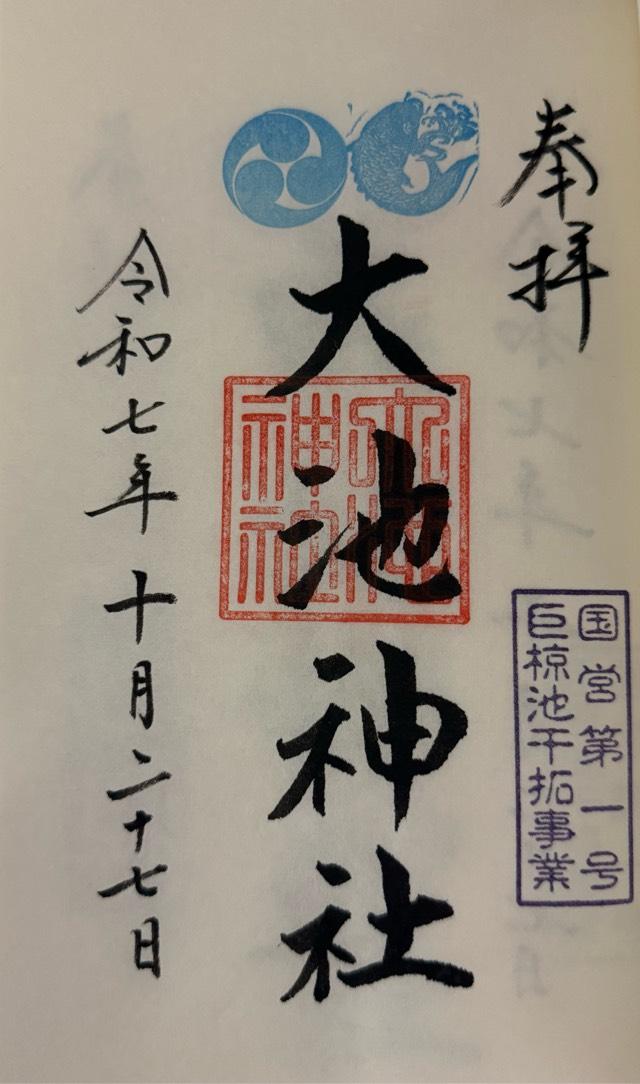 奉拝
国営第一号
巨椋池干拓事業
大池神社
大池神社
令和七年十月二十七日